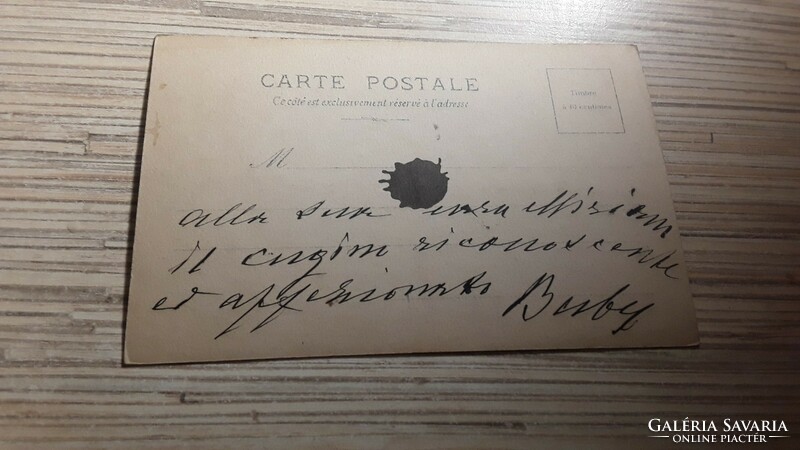 CARTE POSTALE
Ce côté est exclusivement réservé à l'adresse
Timbre
à 10 centimes
M
alla sua cara Miriam
il cugino riconoscente
ed affezionato Buby
GALÉRIA SAVARIA
ONLINE PIACTÉR